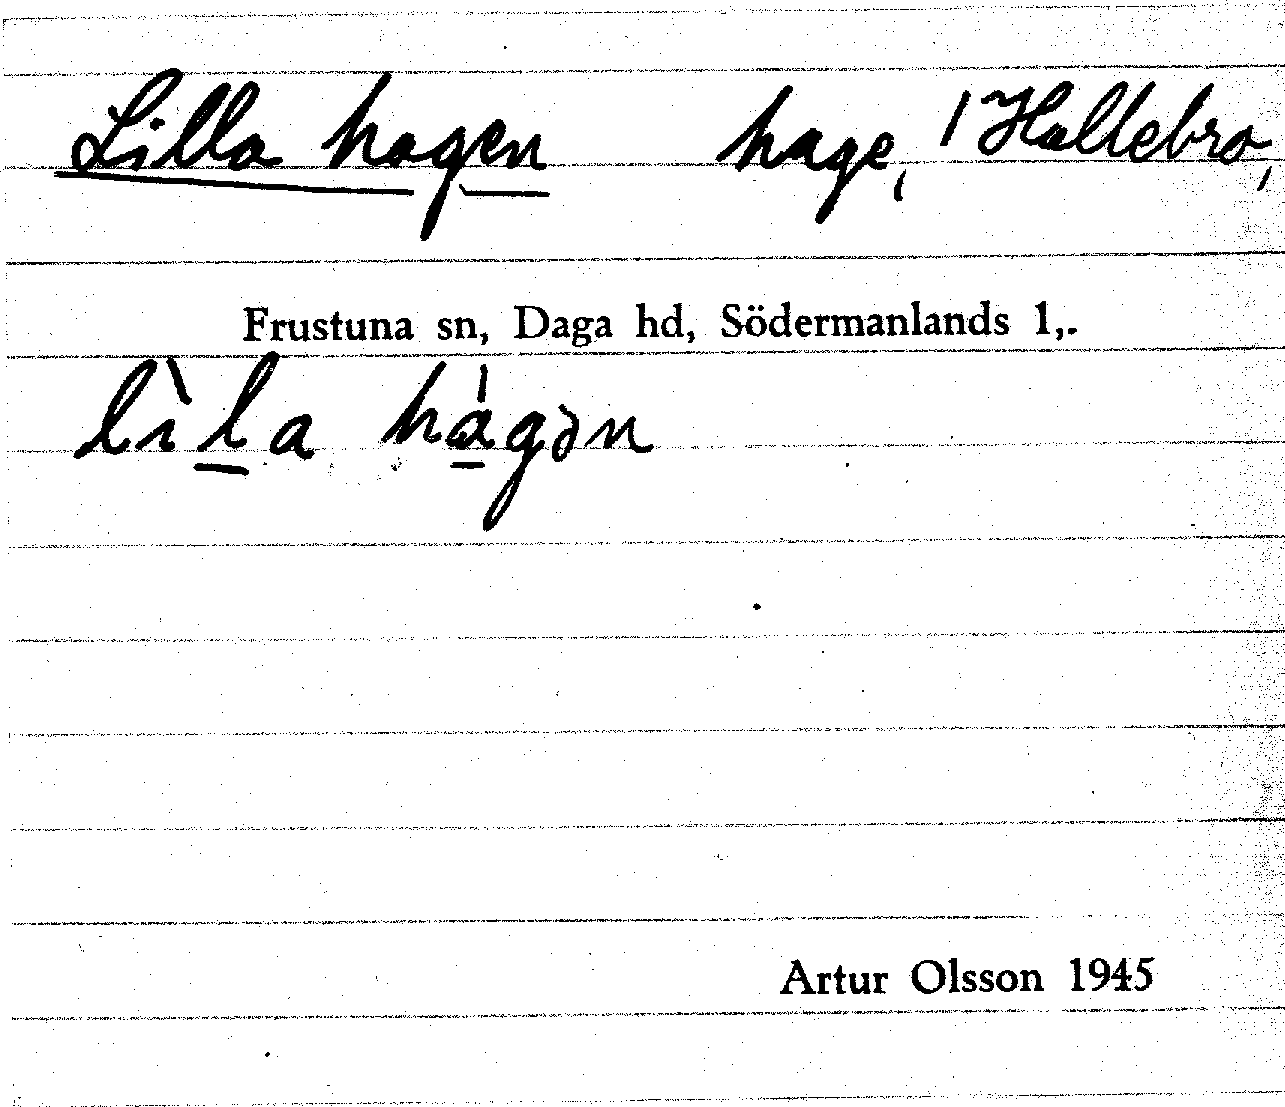 Lilla hagen hage, 1 Hallebro,
Frustuna sn, Daga hd, Södermanlands l,.
lìl̲a há̲gən
Artur Olsson 1945